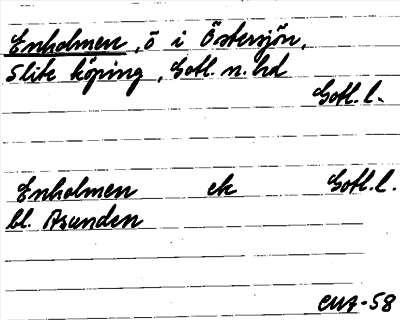 Enholmen, ö i Östersjön,
Slite köping, Gotl. n. hd
Gotl. l.
Enholmen ek Gotl. l.
bl. Asunden
CUA-58